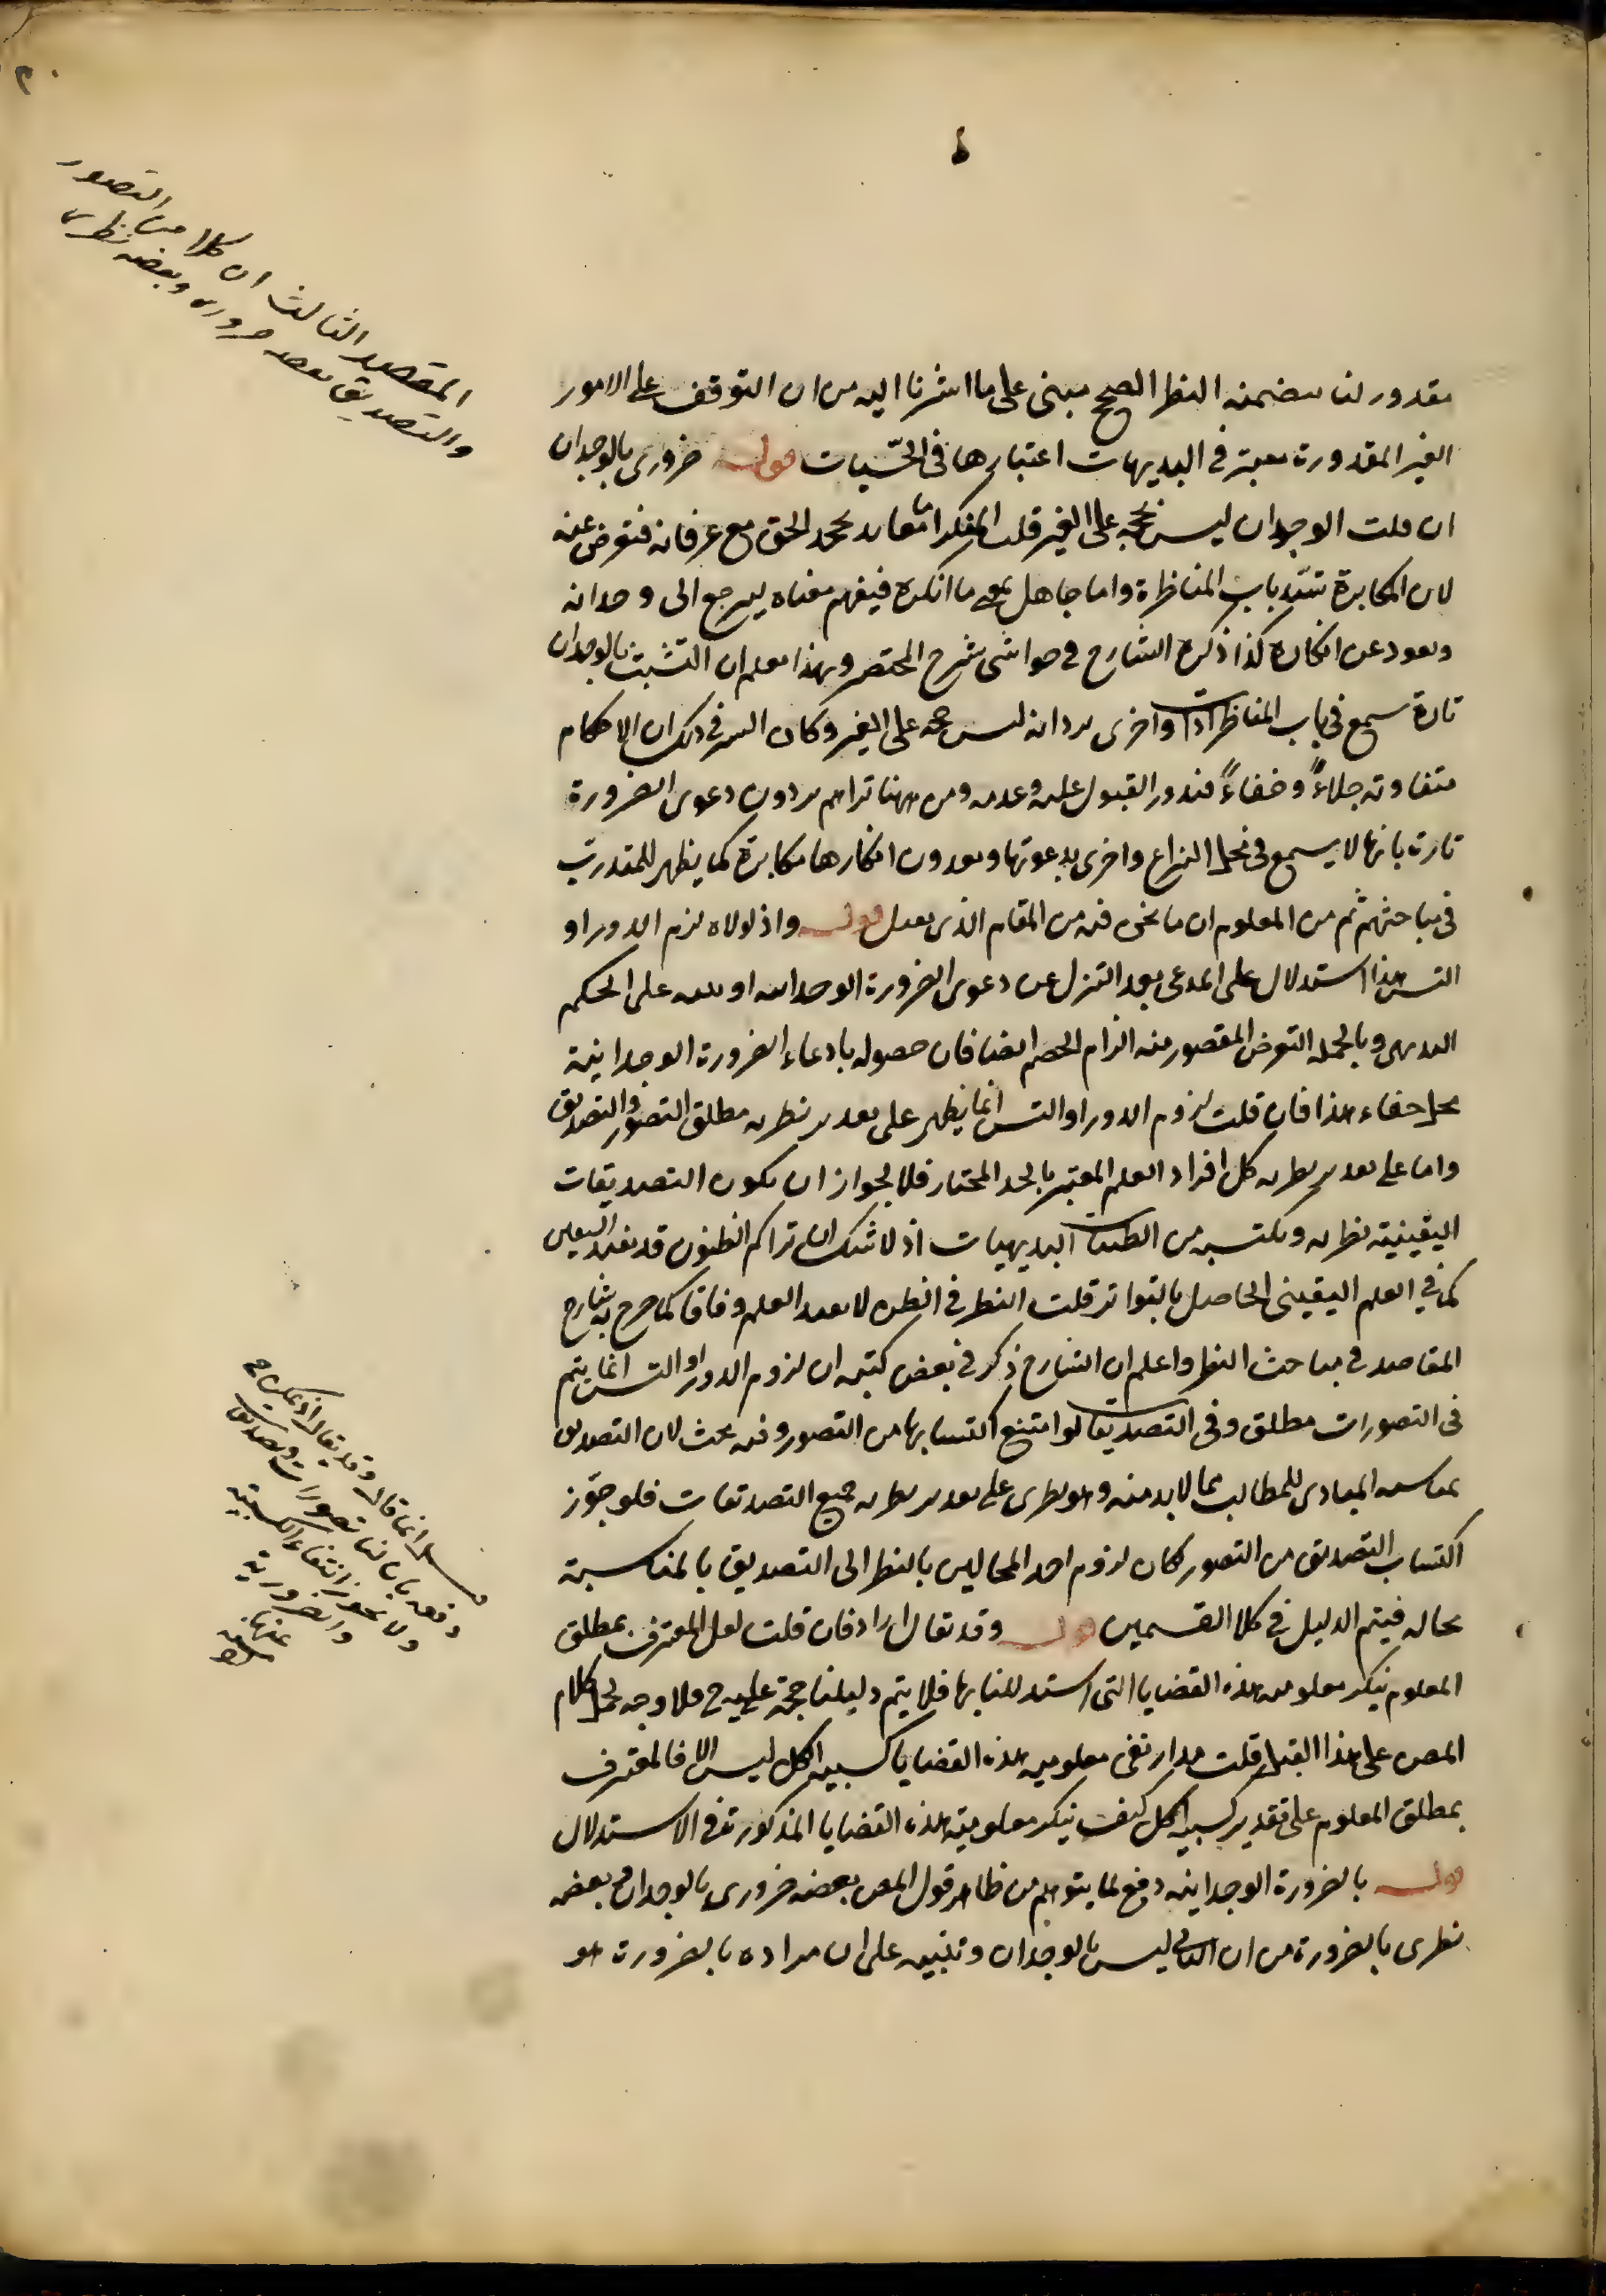 المقصد الثالث ان كلا من التصور
والتصديق بعضه ضرورى وبعضه نظرى
مقدور لنا يتضمنه النظر الصحيح مبنى على ما اشرنا اليه من ان التوقف على الامور
الغير المقدورة معتبر فى البديهيات اعتبارها فى الحسّيات قوله ضرورى بالوجدان
ان قلت الوجدان ليس بحجة على الغير قلت المنكر اما معاند يجحد الحق مع عرفانه فنعرض عنه
لان المكابرة تسد باب المناظرة واما جاهل بمعنى ما انكره فيفهم معناه ليرجع الى وجدانه
ويعود عن انكاره كذا ذكره الشارح فى حواشى شرح المختصر وبهذا يعلم ان التشبث بالوجدان
تارة يسمع فى باب المناظرات واخرى يرد بانه ليس حجة على الغير وكان السر فى ذلك ان الاحكام
متفاوتة جلاءً وخفاءً فيدور القبول عليه وعدمه ومن ههنا تراهم يردون دعوى الضرورة
تارة بانها لا يسمع فى محل النزاع واخرى يدعونها ويعدون انكارها مكابرة كما يظهر للمتدرب
فى مباحثهم ثم من المعلوم ان ما نحن فيه من المقام الذى يقبل قوله واذ لولاه لزم الدور او
التس هذا استدلال على المدعى بعد التنزل عن دعوى الضرورة الوجدانية او تنبيه على الحكم
البديهى وبالجملة التعرض المقصود منه الزام الخصم ايضا فان حصوله بادعاء الضرورة الوجدانية
محل خفاء هذا فان قلت لزوم الدور او التس انما يظهر على تقدير نظرية مطلق التصور والتصديق
واما على تقدير نظرية كل افراد العلم المعتبر بالحد المختار فلا لجواز ان يكون التصديقات
اليقينية نظرية ويكتسب من الظنيات البديهيات اذ لا شك ان تراكم الظنون قد يفيد اليقين
كما فى العلم اليقينى الحاصل بالتواتر قلت النظر فى الظن لا يفيد العلم وفاقا كما صرح به شارح
المقاصد فى مباحث النظر واعلم ان الشارح ذكر فى بعض كتبه ان لزوم الدور او التس انما يتم
فى التصورات مطلق وفى التصديقات لو امتنع اكتسابها من التصور وفيه بحث لان التصديق
بمناسبة المبادى للمطالب مما لا بد منه وهو نظرى على تقدير نظرية جميع التصديقات فلو جوّز
اكتساب التصديق من التصور كان لزوم احد المحالين بالنظر الى التصديق بالمناسبة
بحاله فيتم الدليل فى كلا القسمين قوله وقد يقال ايرادفان قلت لعل المعترف بمطلق
المعلوم ينكر معلومية هذه القضايا التى استدللنا بها فلا يتم دليلنا حجة عليه ح فلا وجه لحمل كلام
المص على هذا القبيل قلت مدار نفى معلومية هذه القضايا كسبية الكل ليس الا فالمعترف
بمطلق المعلوم على تقدير كسبية الكل كيف ينكر معلومية هذه القضايا المذكورة فى الاستدلال
قوله بالضرورة الوجدانية دفع لما يتوهم من ظاهر قول المص بعضه ضرورى بالوجدان وبعضه
نظرى بالضرورة من ان الثانى ليس بالوجدان وتنبيه على ان مراده بالضرورة هو
انما قال وقد يقال اذ يمكن
دفعه بان لنا تصورات وتصديقات
ولا يجوز انتفاء الكسبية
والضرورية
عنها